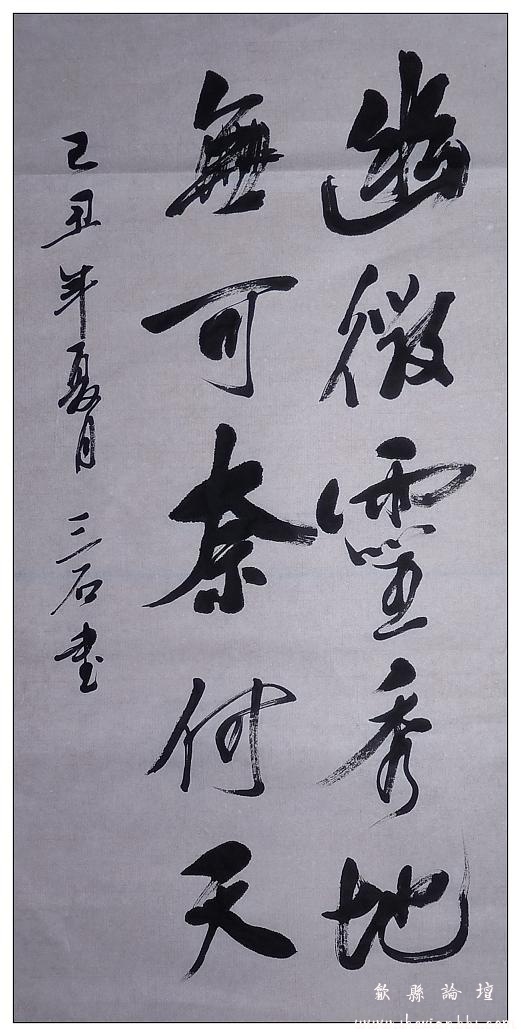 幽微靈秀地
無可奈何天
己丑年夏月 三石書
歙縣論壇